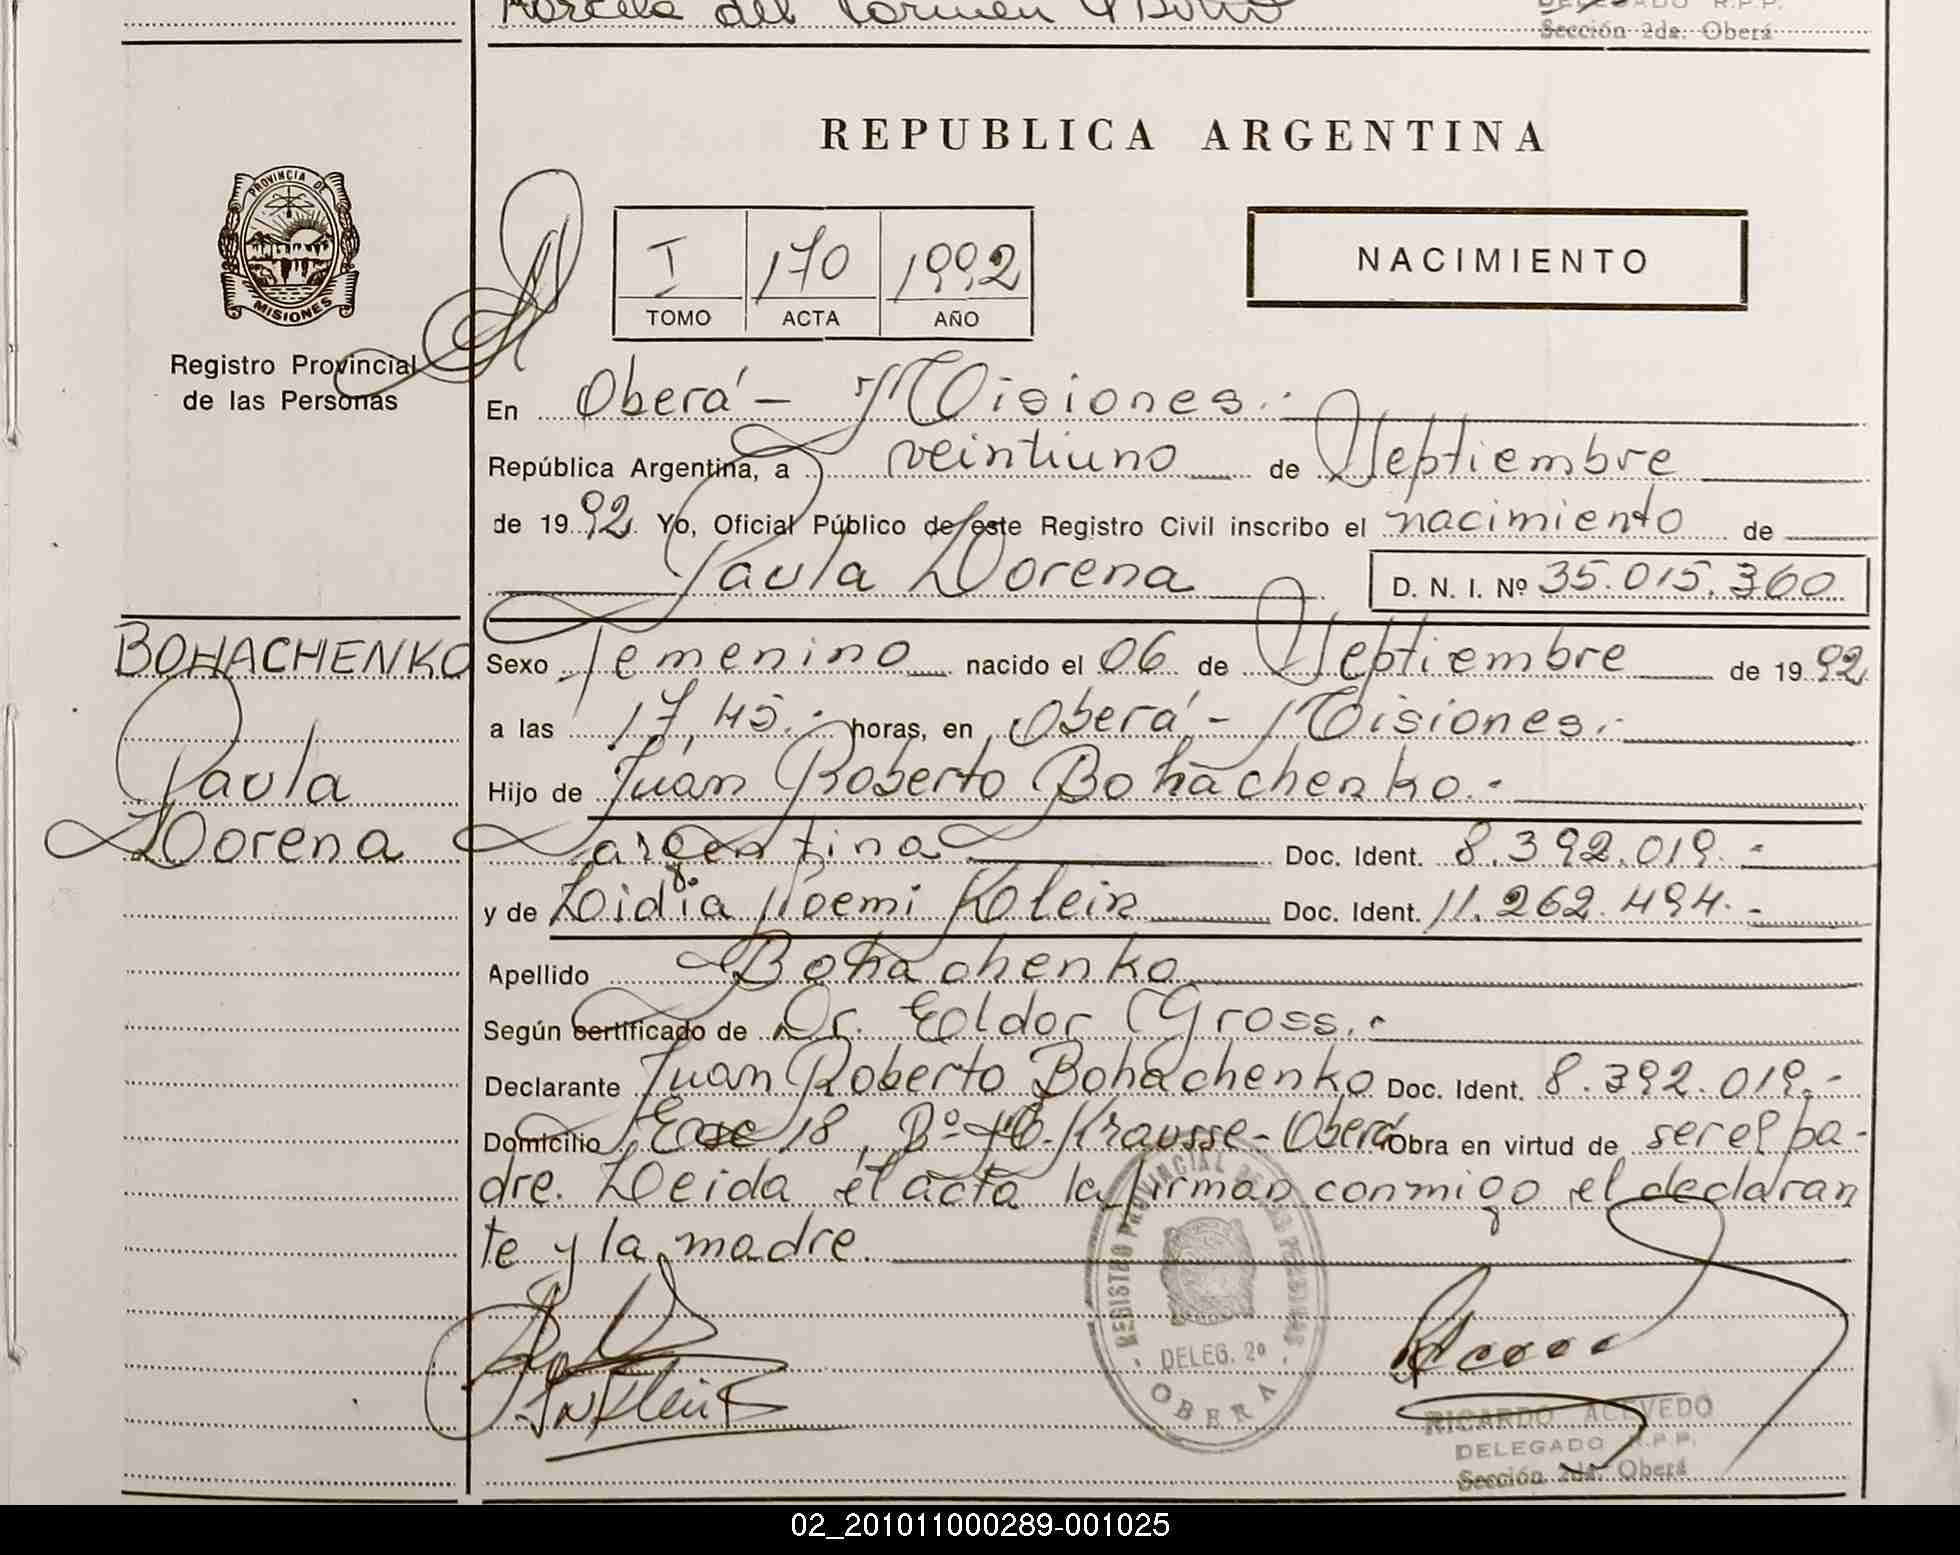 Marcela del Carmen
DELEGADO R.P.P.
Sección 2da. Oberá
REPUBLICA ARGENTINA
PROVINCIA DE
MISIONES
Registro Provincial
de las Personas
I 170 1992
TOMO ACTA AÑO
NACIMIENTO
En Oberá - Misiones.-
República Argentina, a veintiuno de Septiembre
de 1992 Yo, Oficial Público de este Registro Civil inscribo el nacimiento de
Paula Lorena D. N. I. Nº 35.015.360
BOHACHENKO
Paula
Lorena
Sexo femenino nacido el 06 de Septiembre de 1992
a las 17,45.- horas, en Oberá - Misiones.-
Hijo de Juan Roberto Bohachenko.-
argentina Doc. Ident. 8.392.019.-
y de Lidia Noemi Klein Doc. Ident. 11.262.494.-
Apellido Bohachenko
Según certificado de Dr. Eldor Gross.-
Declarante Juan Roberto Bohachenko Doc. Ident. 8.392.019.-
Domicilio 18, Bº Krausse - Oberá Obra en virtud de ser el pa-
dre. Leida el acta la firman conmigo el declaran
te y la madre.
REGISTRO PROVINCIAL DE LAS PERSONAS
DELEG. 2º
OBERA
RICARDO ACEVEDO
DELEGADO R.P.P.
Sección 2da. Oberá
02_201011000289-001025